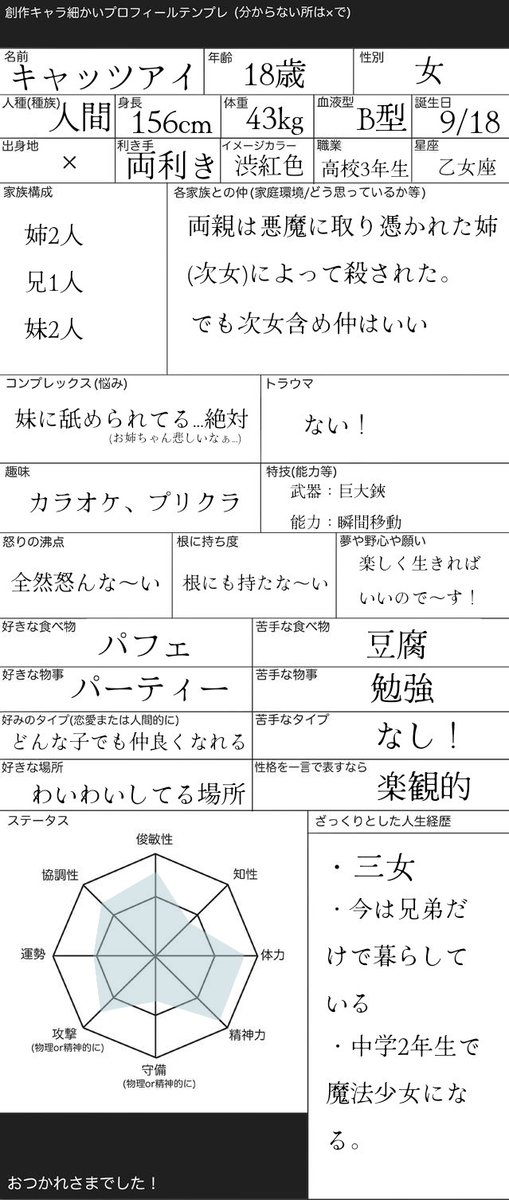 創作キャラ細かいプロフィールテンプレ (分からない所は×で)
名前
キャッツアイ
年齢
18歳
性別
女
人種(種族)
人間
身長
156cm
体重
43kg
血液型
B型
誕生日
9/18
出身地
×
利き手
両利き
イメージカラー
渋紅色
職業
高校3年生
星座
乙女座
家族構成
姉2人
兄1人
妹2人
各家族との仲(家庭環境/どう思っているか等)
両親は悪魔に取り憑かれた姉
(次女)によって殺された。
でも次女含め仲はいい
コンプレックス(悩み)
妹に舐められてる...絶対
(お姉ちゃん悲しいなぁ...)
トラウマ
ない！
趣味
カラオケ、プリクラ
特技(能力等)
武器：巨大鋏
能力：瞬間移動
怒りの沸点
全然怒んな〜い
根に持ち度
根にも持たな〜い
夢や野心や願い
楽しく生きれば
いいので〜す！
好きな食べ物
パフェ
苦手な食べ物
豆腐
好きな物事
パーティー
苦手な物事
勉強
好みのタイプ(恋愛または人間的に)
どんな子でも仲良くなれる
苦手なタイプ
なし！
好きな場所
わいわいしてる場所
性格を一言で表すなら
楽観的
ステータス
俊敏性
知性
体力
精神力
守備
(物理or精神的に)
攻撃
(物理or精神的に)
運勢
協調性
ざっくりとした人生経歴
・三女
・今は兄弟だ
けで暮らして
いる
・中学2年生で
魔法少女にな
る。
おつかれさまでした！